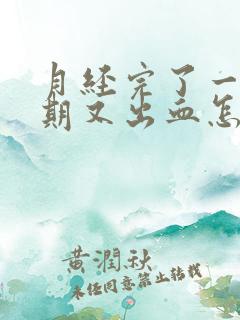 月经完了一
期又出血怎
黄潤秋
未经同意禁止转载